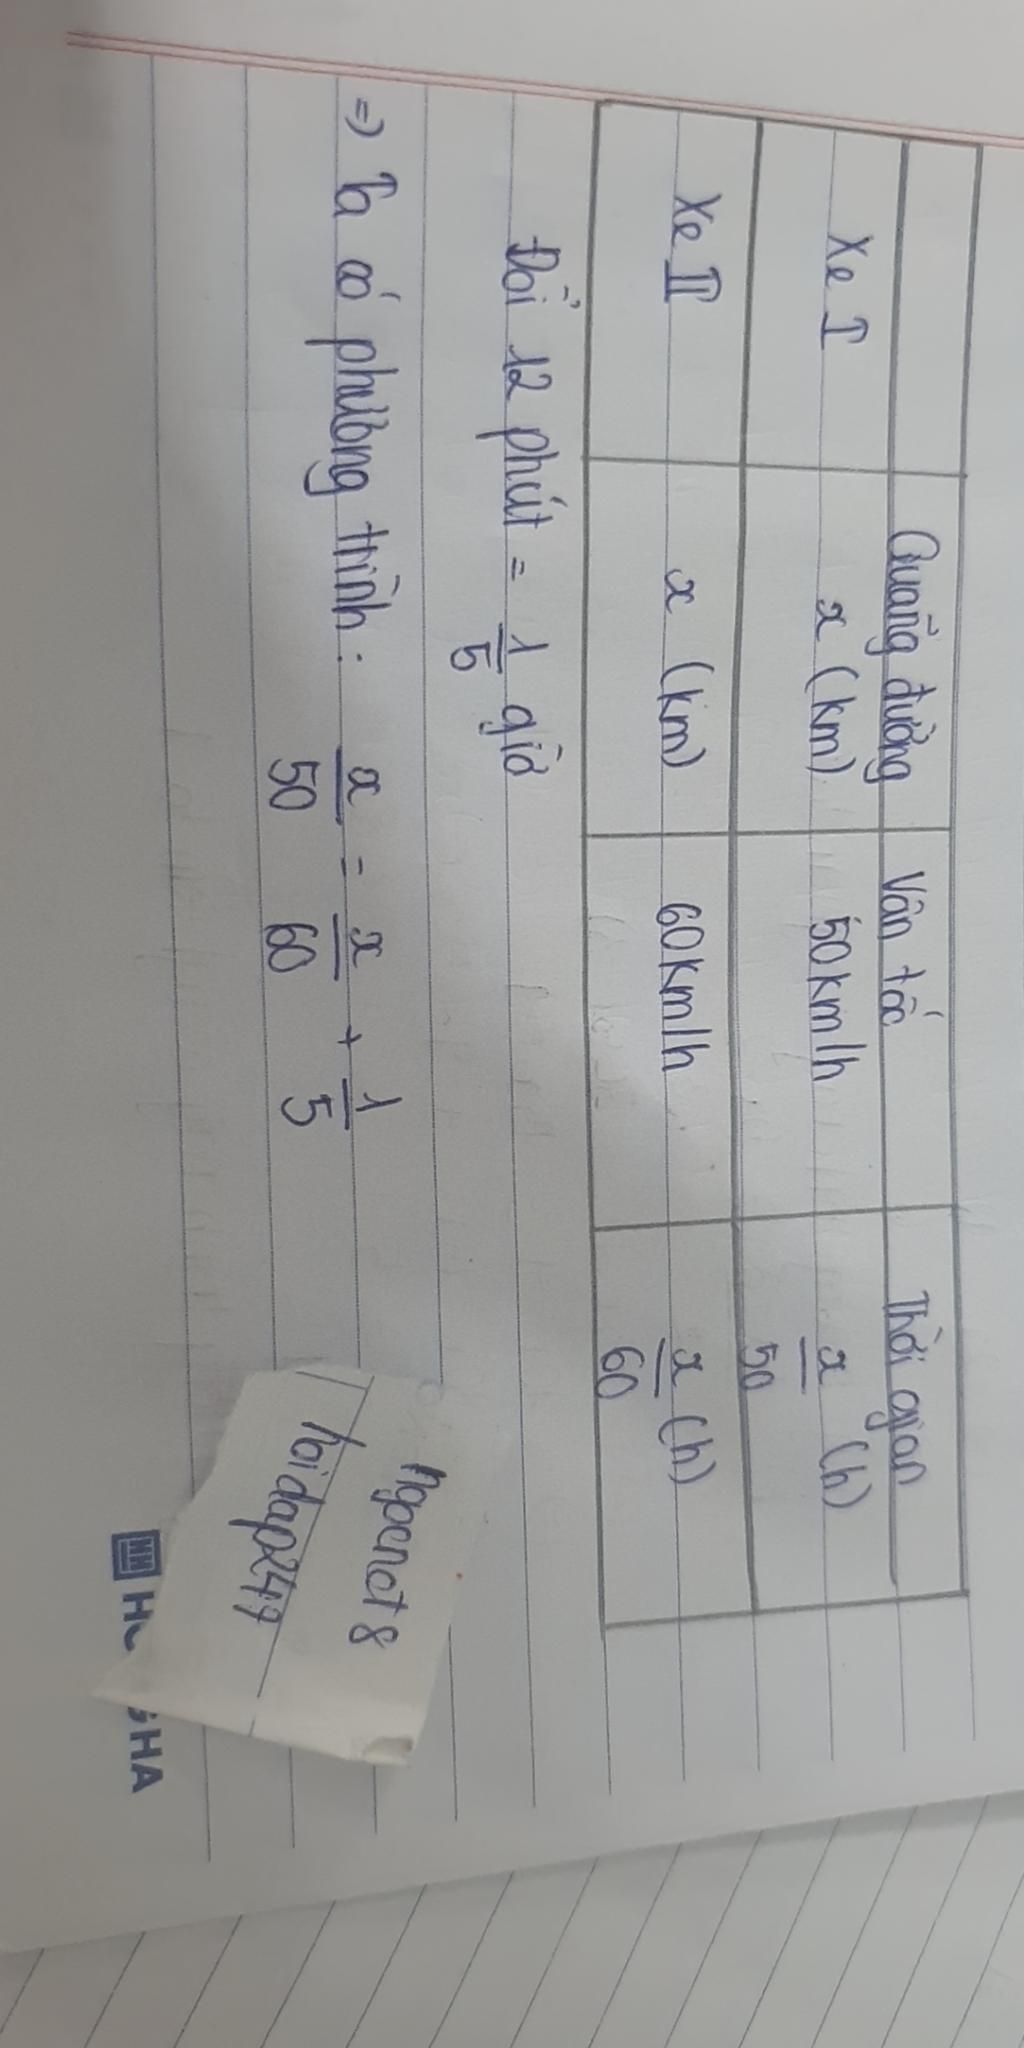 Quãng đường Vận tốc Thời gian
Xe I x (km) 50km/h x/50 (h)
Xe II x (km) 60km/h x/60 (h)
Đổi 12 phút = 1/5 giờ
=> Ta có phương trình: x/50 = x/60 + 1/5
Ngocnct8
hoidap247